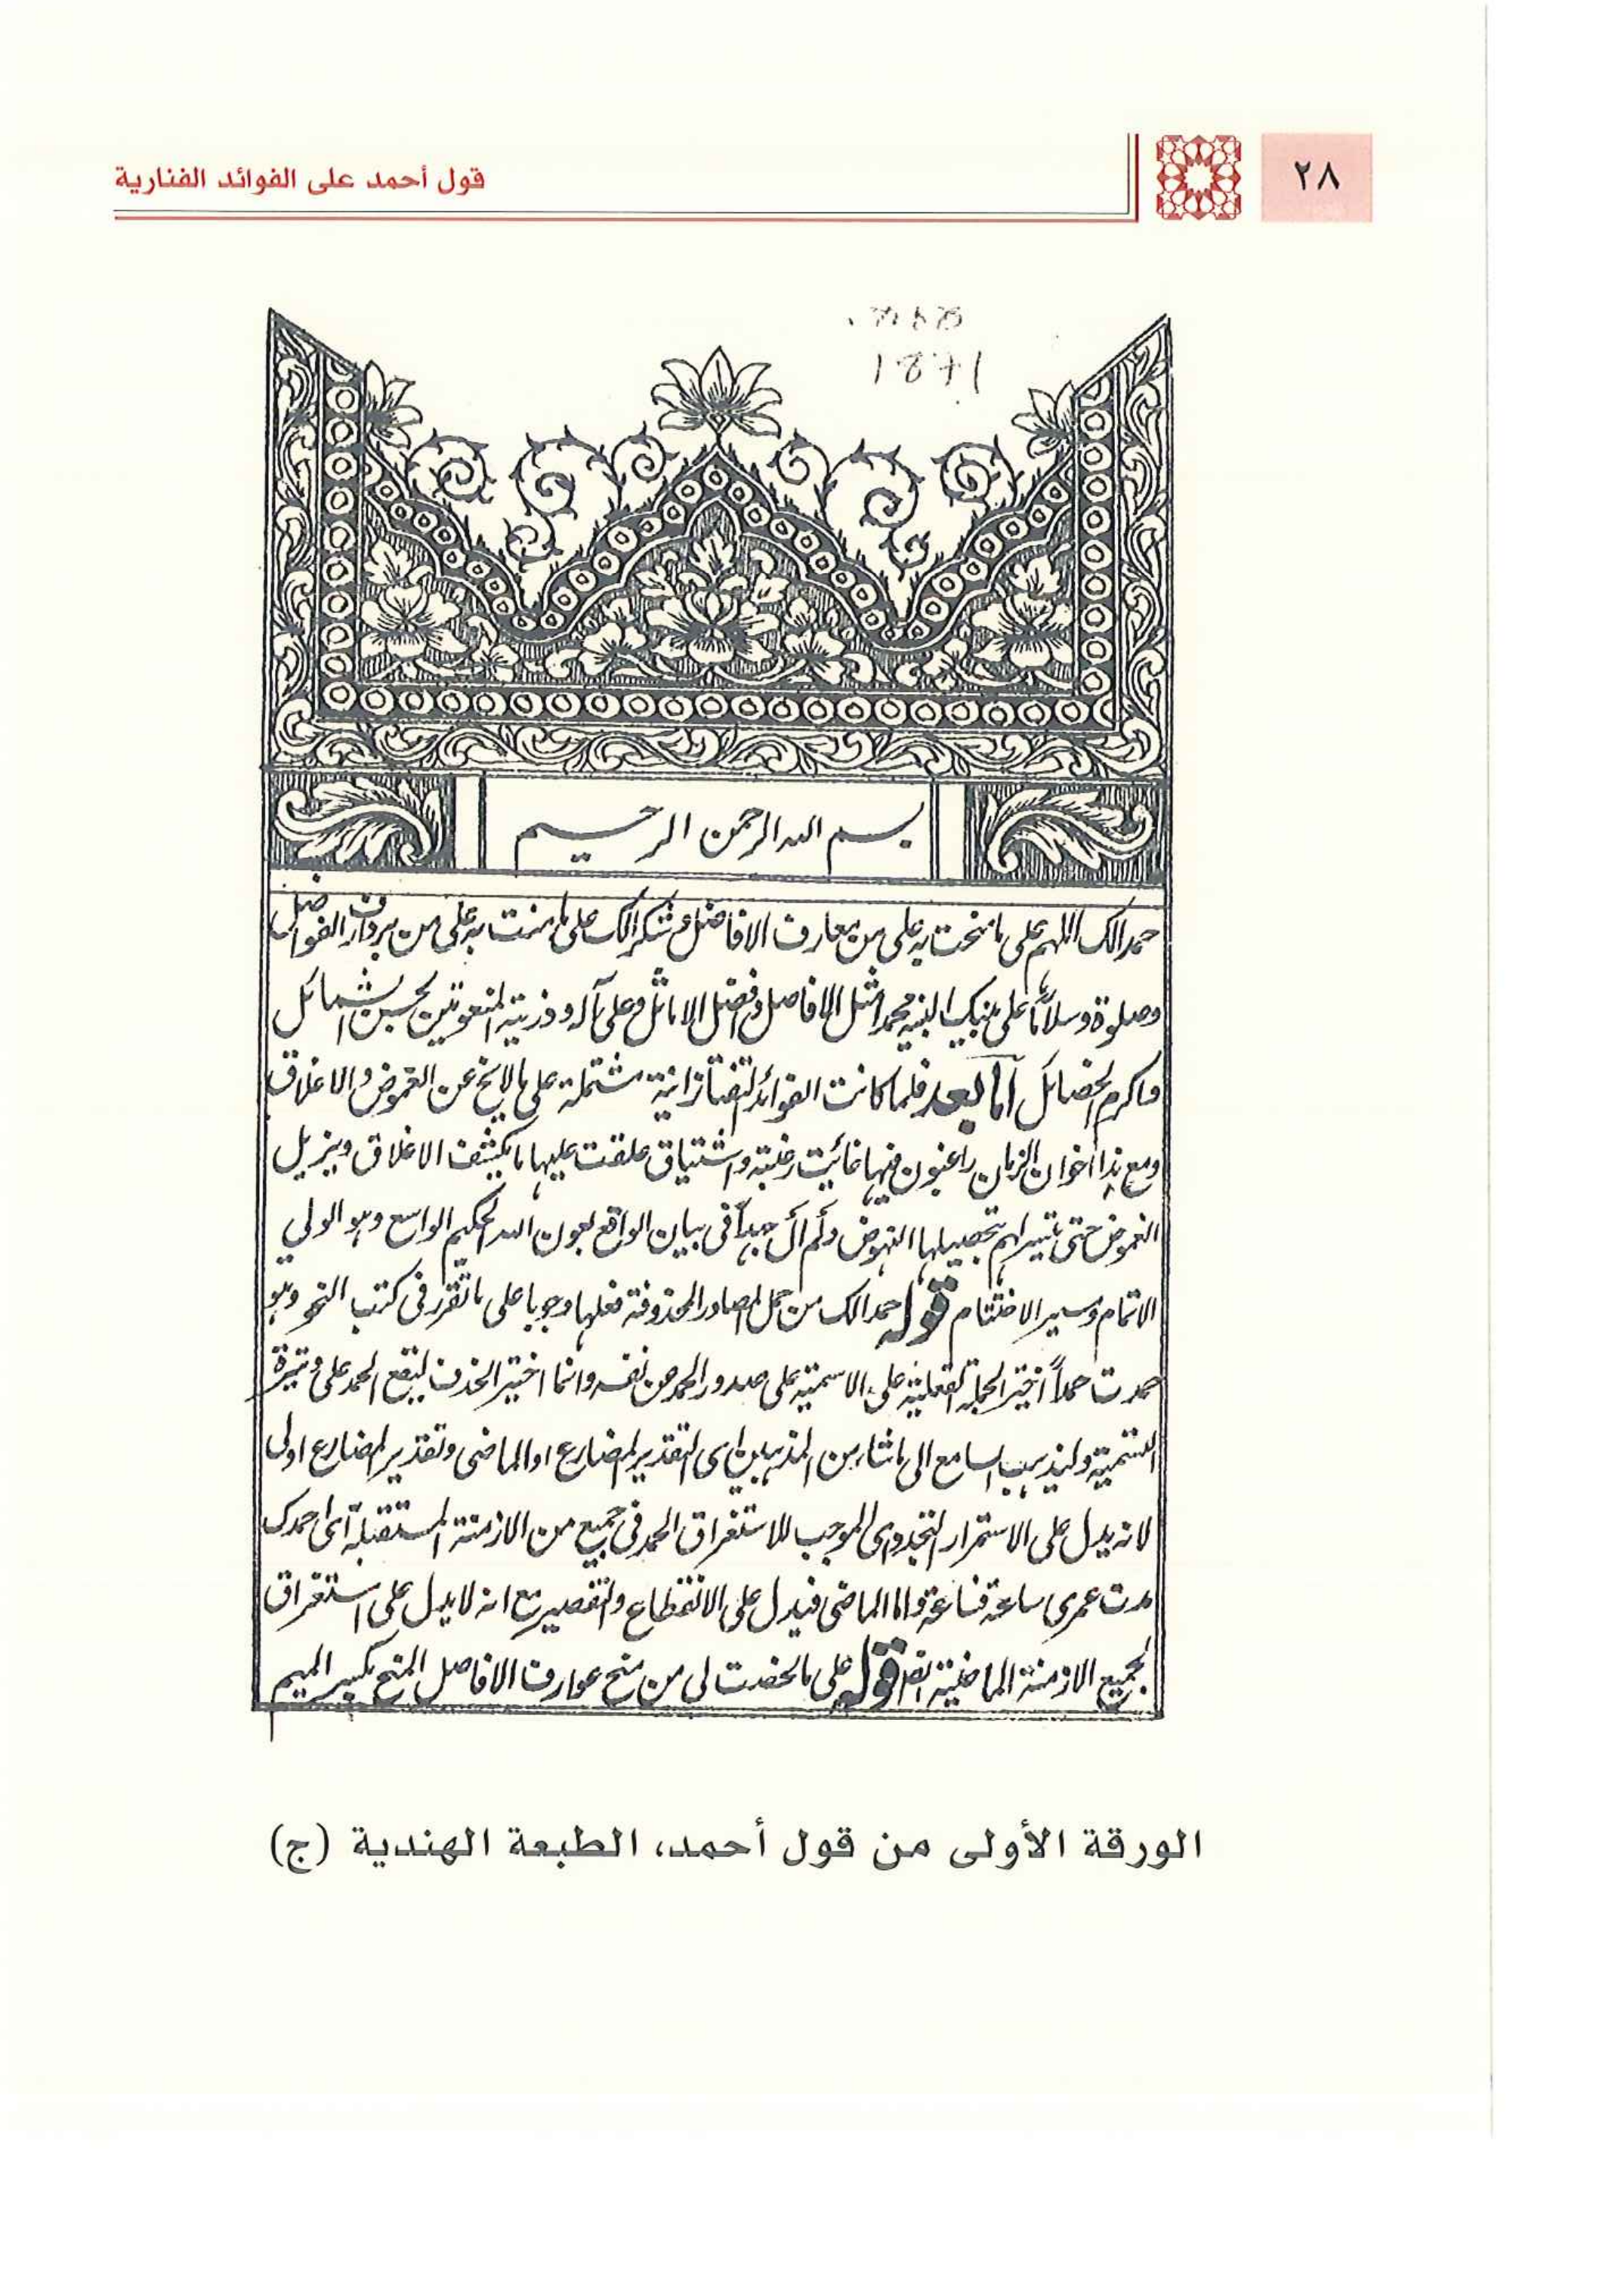 ٢٨
قول أحمد على الفوائد الفنارية
1871
بسم الله الرحمن الرحيم
حمدا لك اللهم على ما منحت به على من معارف الافاضل وشكرا لك على ما مننت به على من بوارق الفواضل
وصلوة وسلاما على نبيك النبيه محمد امثل الافاضل وافضل الاماثل وعلى آله وذريته المنعوتين بحسن الشمائل
واكرم الخصائل اما بعد فلما كانت الفوائد التفتازانية مشتملة على ما لايخ عن الغموض والاغلاق
ومع هذا اخوان الزمان راغبون فيها غائت رغبة واشتياق علقت عليها ما يكشف الاغلاق ويزيل
الغموض حتى تتيسر لهم بتحصيلها النهوض ولم آل جهداً فى بيان الواقع بعون الله الحكيم الواسع وهو الولي
الاتمام وميسر الاختتام قوله حمدا لك من جمل المصادر المحذوفة فعلها وجوبا على ما تقرر فى كتب النحو وهو
حمدت حمداً اختير الجملة الفعلية على الاسمية على صدور الحمد من نفسه وانما اختير الحذف ليقع الحمد على وتيرة
التسمية وليذهب السامع الى ما شاء من المذهبين اى التقدير المضارع او الماضى وتقدير المضارع اولى
لانه يدل على الاستمرار التجددى الموجب للاستغراق الحمد فى جميع من الازمنة المستقبلة اى احمدك
مدت عمرى ساعة فساعة واما الماضى فيدل على الانقطاع والتقصير مع انه لا يدل على استغراق
لجميع الازمنة الماضية ايضا قوله على ما لخصت لى من منح عوارف الافاضل المنح بكسر الميم
الورقة الأولى من قول أحمد، الطبعة الهندية (ج)